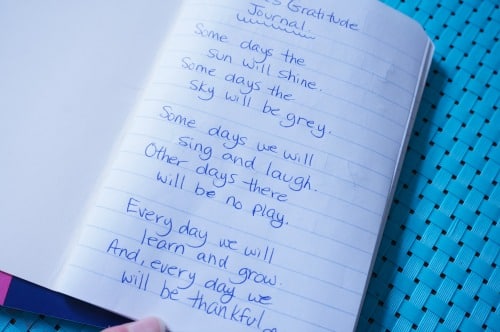 Gratitude
Journal.
Some days the
sun will shine.
Some days the
sky will be grey.
Some days we will
sing and laugh.
Other days there
will be no play.
Every day we will
learn and grow.
And, every day we
will be thankful